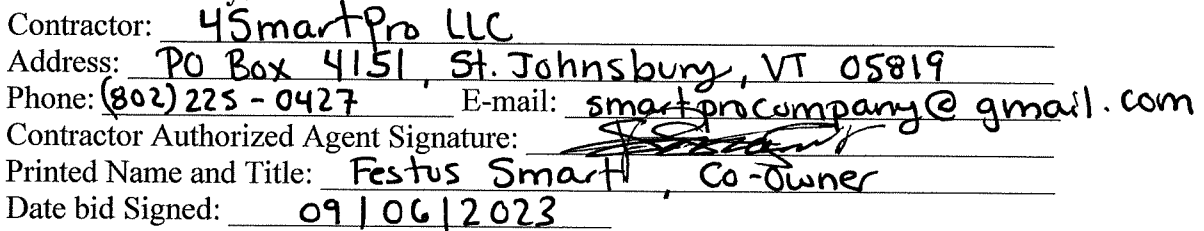 Contractor: 4SmartPro LLC
Address: PO Box 4151, St. Johnsbury, VT 05819
Phone: (802) 225-0427 E-mail: smartprocompany@gmail.com
Contractor Authorized Agent Signature:
Printed Name and Title: Festus Smart, Co-Owner
Date bid Signed: 09/06/2023